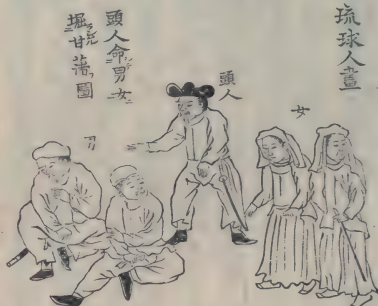 琉球人畫
女
頭人
頭人命男女
堀甘藷圖